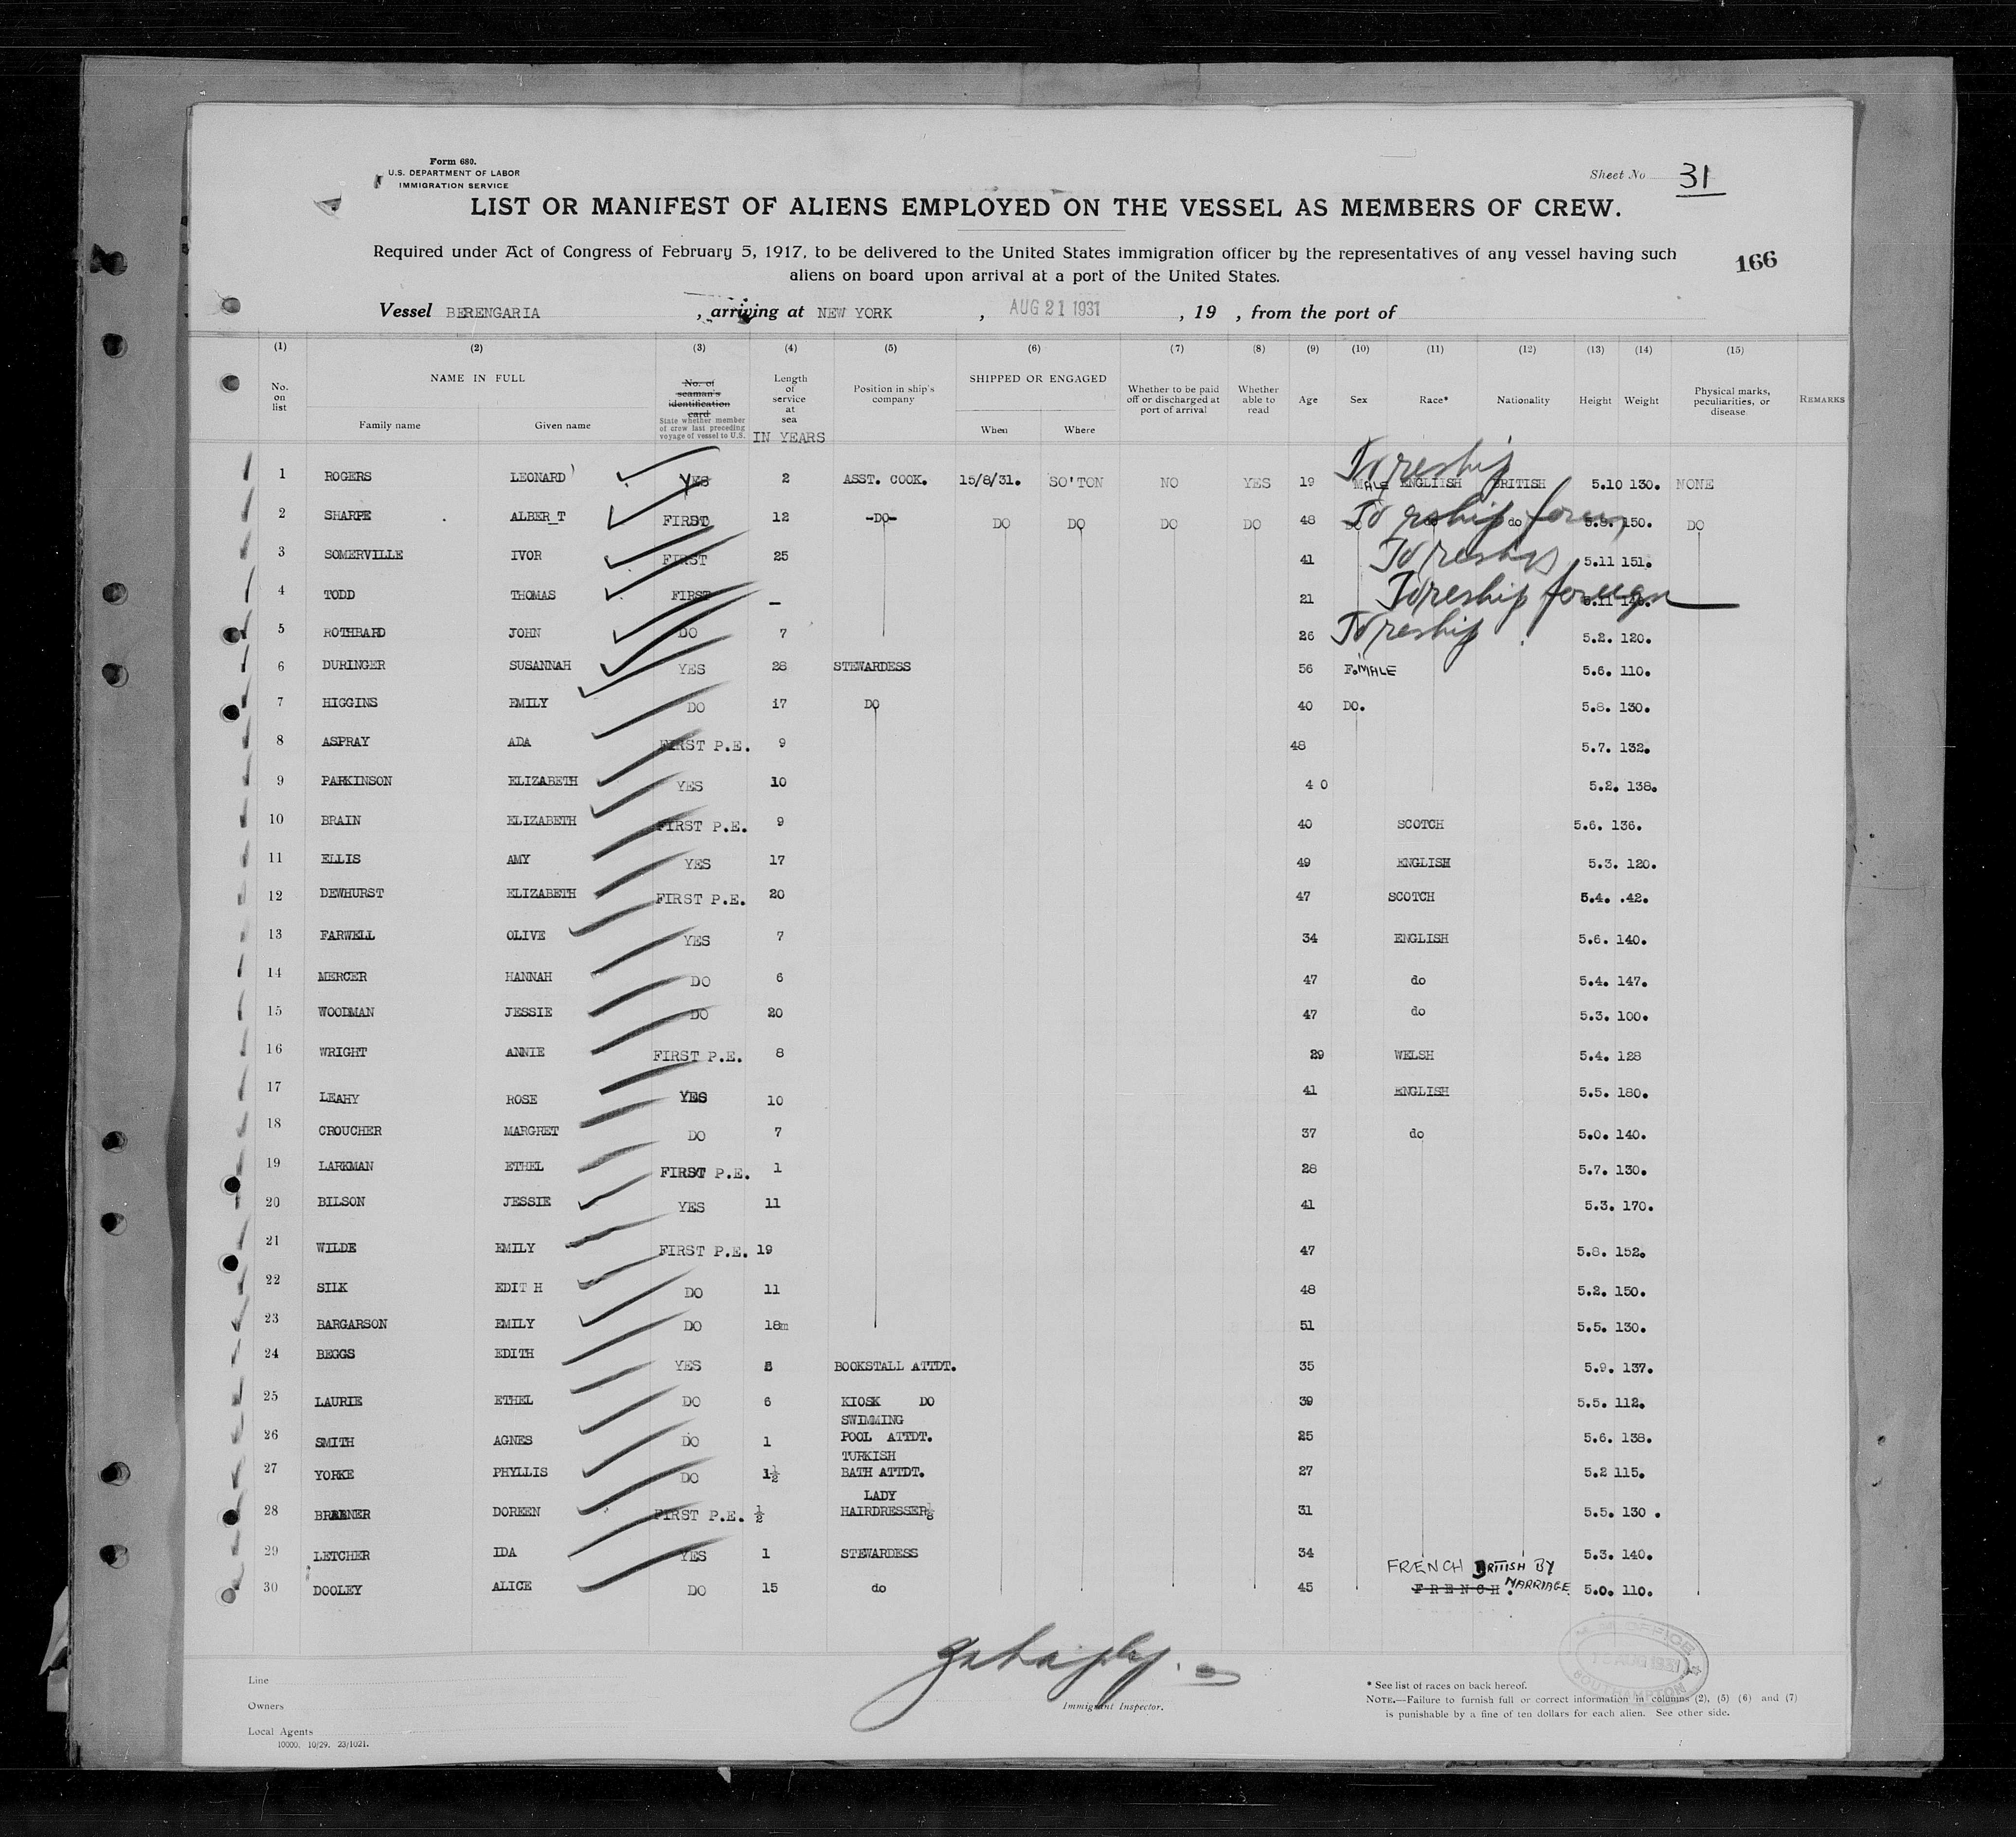 Form 680.
U.S. DEPARTMENT OF LABOR
IMMIGRATION SERVICE
Sheet No 31
LIST OR MANIFEST OF ALIENS EMPLOYED ON THE VESSEL AS MEMBERS OF CREW.
Required under Act of Congress of February 5, 1917, to be delivered to the United States immigration officer by the representatives of any vessel having such
aliens on board upon arrival at a port of the United States.
166
Vessel BERENGARIA , arriving at NEW YORK , AUG 21 1931 , 19 , from the port of
(1) (2) (3) (4) (5) (6) (7) (8) (9) (10) (11) (12) (13) (14) (15)
No. on list
NAME IN FULL
Family name Given name
No. of seaman's identification card
State whether member of crew last preceding voyage of vessel to U.S.
Length of service at sea
IN YEARS
Position in ship's company
SHIPPED OR ENGAGED
When Where
Whether to be paid off or discharged at port of arrival
Whether able to read
Age Sex Race* Nationality Height Weight
Physical marks, peculiarities, or disease
REMARKS
1 ROGERS LEONARD YES 2 ASST. COOK. 15/8/31. SO'TON NO YES 19 MALE ENGLISH BRITISH 5.10 130. NONE
To reship
2 SHARPE ALBER_T FIRST 12 -DO- DO DO DO DO 48 DO do do 5.8. 150. DO
To reship foreign
3 SOMERVILLE IVOR FIRST 25 41 5.11 151.
To reship
4 TODD THOMAS FIRST - 21 5.11
To reship foreign
5 ROTHBARD JOHN DO 7 26 5.2. 120.
To reship
6 DURINGER SUSANNAH YES 28 STEWARDESS 56 F.MALE 5.6. 110.
7 HIGGINS EMILY DO 17 DO 40 DO. 5.8. 130.
8 ASPRAY ADA FIRST P.E. 9 48 5.7. 132.
9 PARKINSON ELIZABETH YES 10 4 0 5.2. 138.
10 BRAIN ELIZABETH FIRST P.E. 9 40 SCOTCH 5.6. 136.
11 ELLIS AMY YES 17 49 ENGLISH 5.3. 120.
12 DEWHURST ELIZABETH FIRST P.E. 20 47 SCOTCH 5.4. .42.
13 FARWELL OLIVE YES 7 34 ENGLISH 5.6. 140.
14 MERCER HANNAH DO 6 47 do 5.4. 147.
15 WOODMAN JESSIE DO 20 47 do 5.3. 100.
16 WRIGHT ANNIE FIRST P.E. 8 29 WELSH 5.4. 128
17 LEAHY ROSE YES 10 41 ENGLISH 5.5. 180.
18 CROUCHER MARGRET DO 7 37 do 5.0. 140.
19 LARKMAN ETHEL FIRST P.E. 1 28 5.7. 130.
20 BILSON JESSIE YES 11 41 5.3. 170.
21 WILDE EMILY FIRST P.E. 19 47 5.8. 152.
22 SILK EDIT H DO 11 48 5.2. 150.
23 BARGARSON EMILY DO 18m 51 5.5. 130.
24 BEGGS EDITH YES BOOKSTALL ATTDT. 35 5.9. 137.
25 LAURIE ETHEL DO 6 KIOSK DO 39 5.5. 112.
26 SMITH AGNES DO 1 SWIMMING POOL ATTDT. 25 5.6. 138.
27 YORKE PHYLLIS DO 1½ TURKISH BATH ATTDT. 27 5.2 115.
28 DOREEN FIRST P.E. ½ LADY HAIRDRESSER 31 5.5. 130 .
29 LETCHER IDA YES 1 STEWARDESS 34 5.3. 140.
30 DOOLEY ALICE DO 15 do 45 FRENCH FRENCH. BRITISH BY MARRIAGE 5.0. 110.
Line
Owners
Local Agents
10000. 10/29. 23/1021.
Immigrant Inspector.
* See list of races on back hereof.
NOTE.—Failure to furnish full or correct information in columns (2), (5) (6) and (7)
is punishable by a fine of ten dollars for each alien. See other side.
M.M. OFFICE
AUG 1931
SOUTHAMPTON